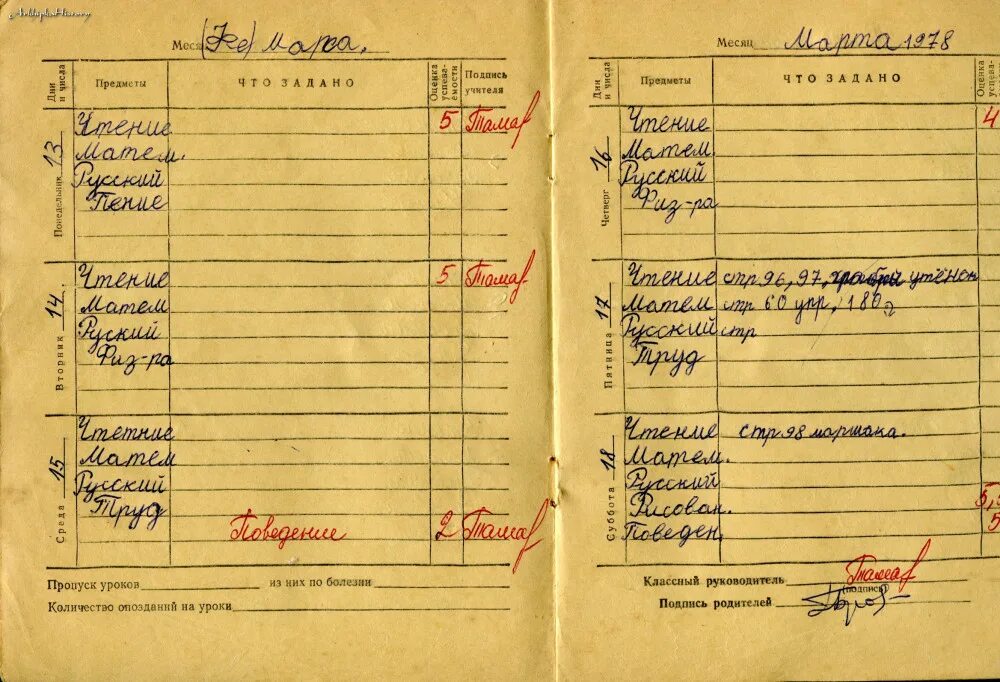 Месяц (Же) Марса.
Дни и числа Предметы ЧТО ЗАДАНО Оценка успеваемости Подпись учителя
Понедельник 13
Чтение 5 Тамаг
Матем.
Русский
Пение
Вторник 14
Чтение 5 Тамаг
Матем
Руский
Физ-ра
Среда 15
Чтетние
Матем
Русский
Труд
Поведение 2 Тамаг
Пропуск уроков из них по болезни
Количество опозданий на уроки
Месяц Марта 1978
Дни и числа Предметы ЧТО ЗАДАНО Оценка успева-
Четверг 16
Чтение 4
Матем.
Русский
Физ-ра
Пятница 17
Чтение стр 96, 97, утёнок
Матем стр 60 упр, 180
Русский стр
Труд
Суббота 18
Чтение стр 98 маршака.
Матем.
Русский
Рисован. 5,
Поведен. 5
Классный руководитель Тамаг
(подпись)
Подпись родителей